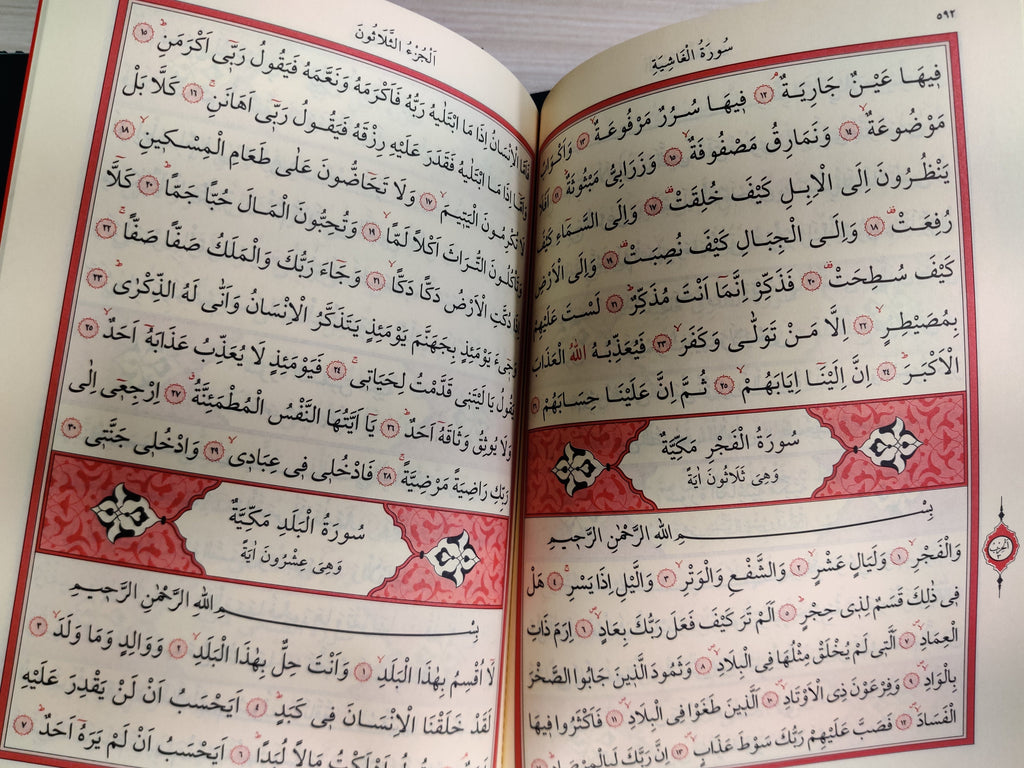 ٥٩٢
سُورَةُ الْغَاشِيَةِ
فِيهَا عَيْنٌ جَارِيَةٌ ١٢ فِيهَا سُرُرٌ مَرْفُوعَةٌ ١٣ وَاَكْوَابٌ
مَوْضُوعَةٌ ١٤ وَنَمَارِقُ مَصْفُوفَةٌ ١٥ وَزَرَابِىُّ مَبْثُوثَةٌ ١٦ اَفَلَا
يَنْظُرُونَ اِلَى الْاِبِلِ كَيْفَ خُلِقَتْ ١٧ وَاِلَى السَّمَاءِ كَيْفَ
رُفِعَتْ ١٨ وَاِلَى الْجِبَالِ كَيْفَ نُصِبَتْ ١٩ وَاِلَى الْاَرْضِ
كَيْفَ سُطِحَتْ ٢٠ فَذَكِّرْ اِنَّمَا اَنْتَ مُذَكِّرٌ ٢١ لَسْتَ عَلَيْهِمْ
بِمُصَيْطِرٍ ٢٢ اِلَّا مَنْ تَوَلّٰى وَكَفَرَ ٢٣ فَيُعَذِّبُهُ اللّٰهُ الْعَذَابَ
الْاَكْبَرَ ٢٤ اِنَّ اِلَيْنَا اِيَابَهُمْ ٢٥ ثُمَّ اِنَّ عَلَيْنَا حِسَابَهُمْ ٢٦
سُورَةُ الْفَجْرِ مَكِّيَّةٌ
وَهِىَ ثَلَاثُونَ اٰيَةً
بِسْمِ اللّٰهِ الرَّحْمٰنِ الرَّحِيمِ
وَالْفَجْرِ ١ وَلَيَالٍ عَشْرٍ ٢ وَالشَّفْعِ وَالْوَتْرِ ٣ وَالَّيْلِ اِذَا يَسْرِ ٤ هَلْ
فِى ذٰلِكَ قَسَمٌ لِذِى حِجْرٍ ٥ اَلَمْ تَرَ كَيْفَ فَعَلَ رَبُّكَ بِعَادٍ ٦ اِرَمَ ذَاتِ
الْعِمَادِ ٧ اَلَّتِى لَمْ يُخْلَقْ مِثْلُهَا فِى الْبِلَادِ ٨ وَثَمُودَ الَّذِينَ جَابُوا الصَّخْرَ
بِالْوَادِ ٩ وَفِرْعَوْنَ ذِى الْاَوْتَادِ ١٠ اَلَّذِينَ طَغَوْا فِى الْبِلَادِ ١١ فَاَكْثَرُوا فِيهَا
الْفَسَادَ ١٢ فَصَبَّ عَلَيْهِمْ رَبُّكَ سَوْطَ عَذَابٍ ١٣ اِنَّ رَبَّكَ لَبِالْمِرْصَادِ
اَلْجُزْءُ الثَّلَاثُونَ
فَاَمَّا الْاِنْسَانُ اِذَا مَا ابْتَلٰيهُ رَبُّهُ فَاَكْرَمَهُ وَنَعَّمَهُ فَيَقُولُ رَبِّى اَكْرَمَنِ ١٥
وَاَمَّا اِذَا مَا ابْتَلٰيهُ فَقَدَرَ عَلَيْهِ رِزْقَهُ فَيَقُولُ رَبِّى اَهَانَنِ ١٦ كَلَّا بَلْ
لَا تُكْرِمُونَ الْيَتِيمَ ١٧ وَلَا تَحَاضُّونَ عَلٰى طَعَامِ الْمِسْكِينِ ١٨
وَتَأْكُلُونَ التُّرَاثَ اَكْلًا لَمًّا ١٩ وَتُحِبُّونَ الْمَالَ حُبًّا جَمًّا ٢٠ كَلَّا
اِذَا دُكَّتِ الْاَرْضُ دَكًّا دَكًّا ٢١ وَجَاءَ رَبُّكَ وَالْمَلَكُ صَفًّا صَفًّا ٢٢
وَجِىءَ يَوْمَئِذٍ بِجَهَنَّمَ يَوْمَئِذٍ يَتَذَكَّرُ الْاِنْسَانُ وَاَنّٰى لَهُ الذِّكْرٰى ٢٣
يَقُولُ يَا لَيْتَنِى قَدَّمْتُ لِحَيَاتِى ٢٤ فَيَوْمَئِذٍ لَا يُعَذِّبُ عَذَابَهُ اَحَدٌ ٢٥
وَلَا يُوثِقُ وَثَاقَهُ اَحَدٌ ٢٦ يَا اَيَّتُهَا النَّفْسُ الْمُطْمَئِنَّةُ ٢٧ اِرْجِعِى اِلٰى
رَبِّكِ رَاضِيَةً مَرْضِيَّةً ٢٨ فَادْخُلِى فِى عِبَادِى ٢٩ وَادْخُلِى جَنَّتِى ٣٠
سُورَةُ الْبَلَدِ مَكِّيَّةٌ
وَهِىَ عِشْرُونَ اٰيَةً
بِسْمِ اللّٰهِ الرَّحْمٰنِ الرَّحِيمِ
لَا اُقْسِمُ بِهٰذَا الْبَلَدِ ١ وَاَنْتَ حِلٌّ بِهٰذَا الْبَلَدِ ٢ وَوَالِدٍ وَمَا وَلَدَ ٣
لَقَدْ خَلَقْنَا الْاِنْسَانَ فِى كَبَدٍ ٤ اَيَحْسَبُ اَنْ لَنْ يَقْدِرَ عَلَيْهِ
اَحَدٌ ٥ يَقُولُ اَهْلَكْتُ مَالًا لُبَدًا ٦ اَيَحْسَبُ اَنْ لَمْ يَرَهُ اَحَدٌ ٧